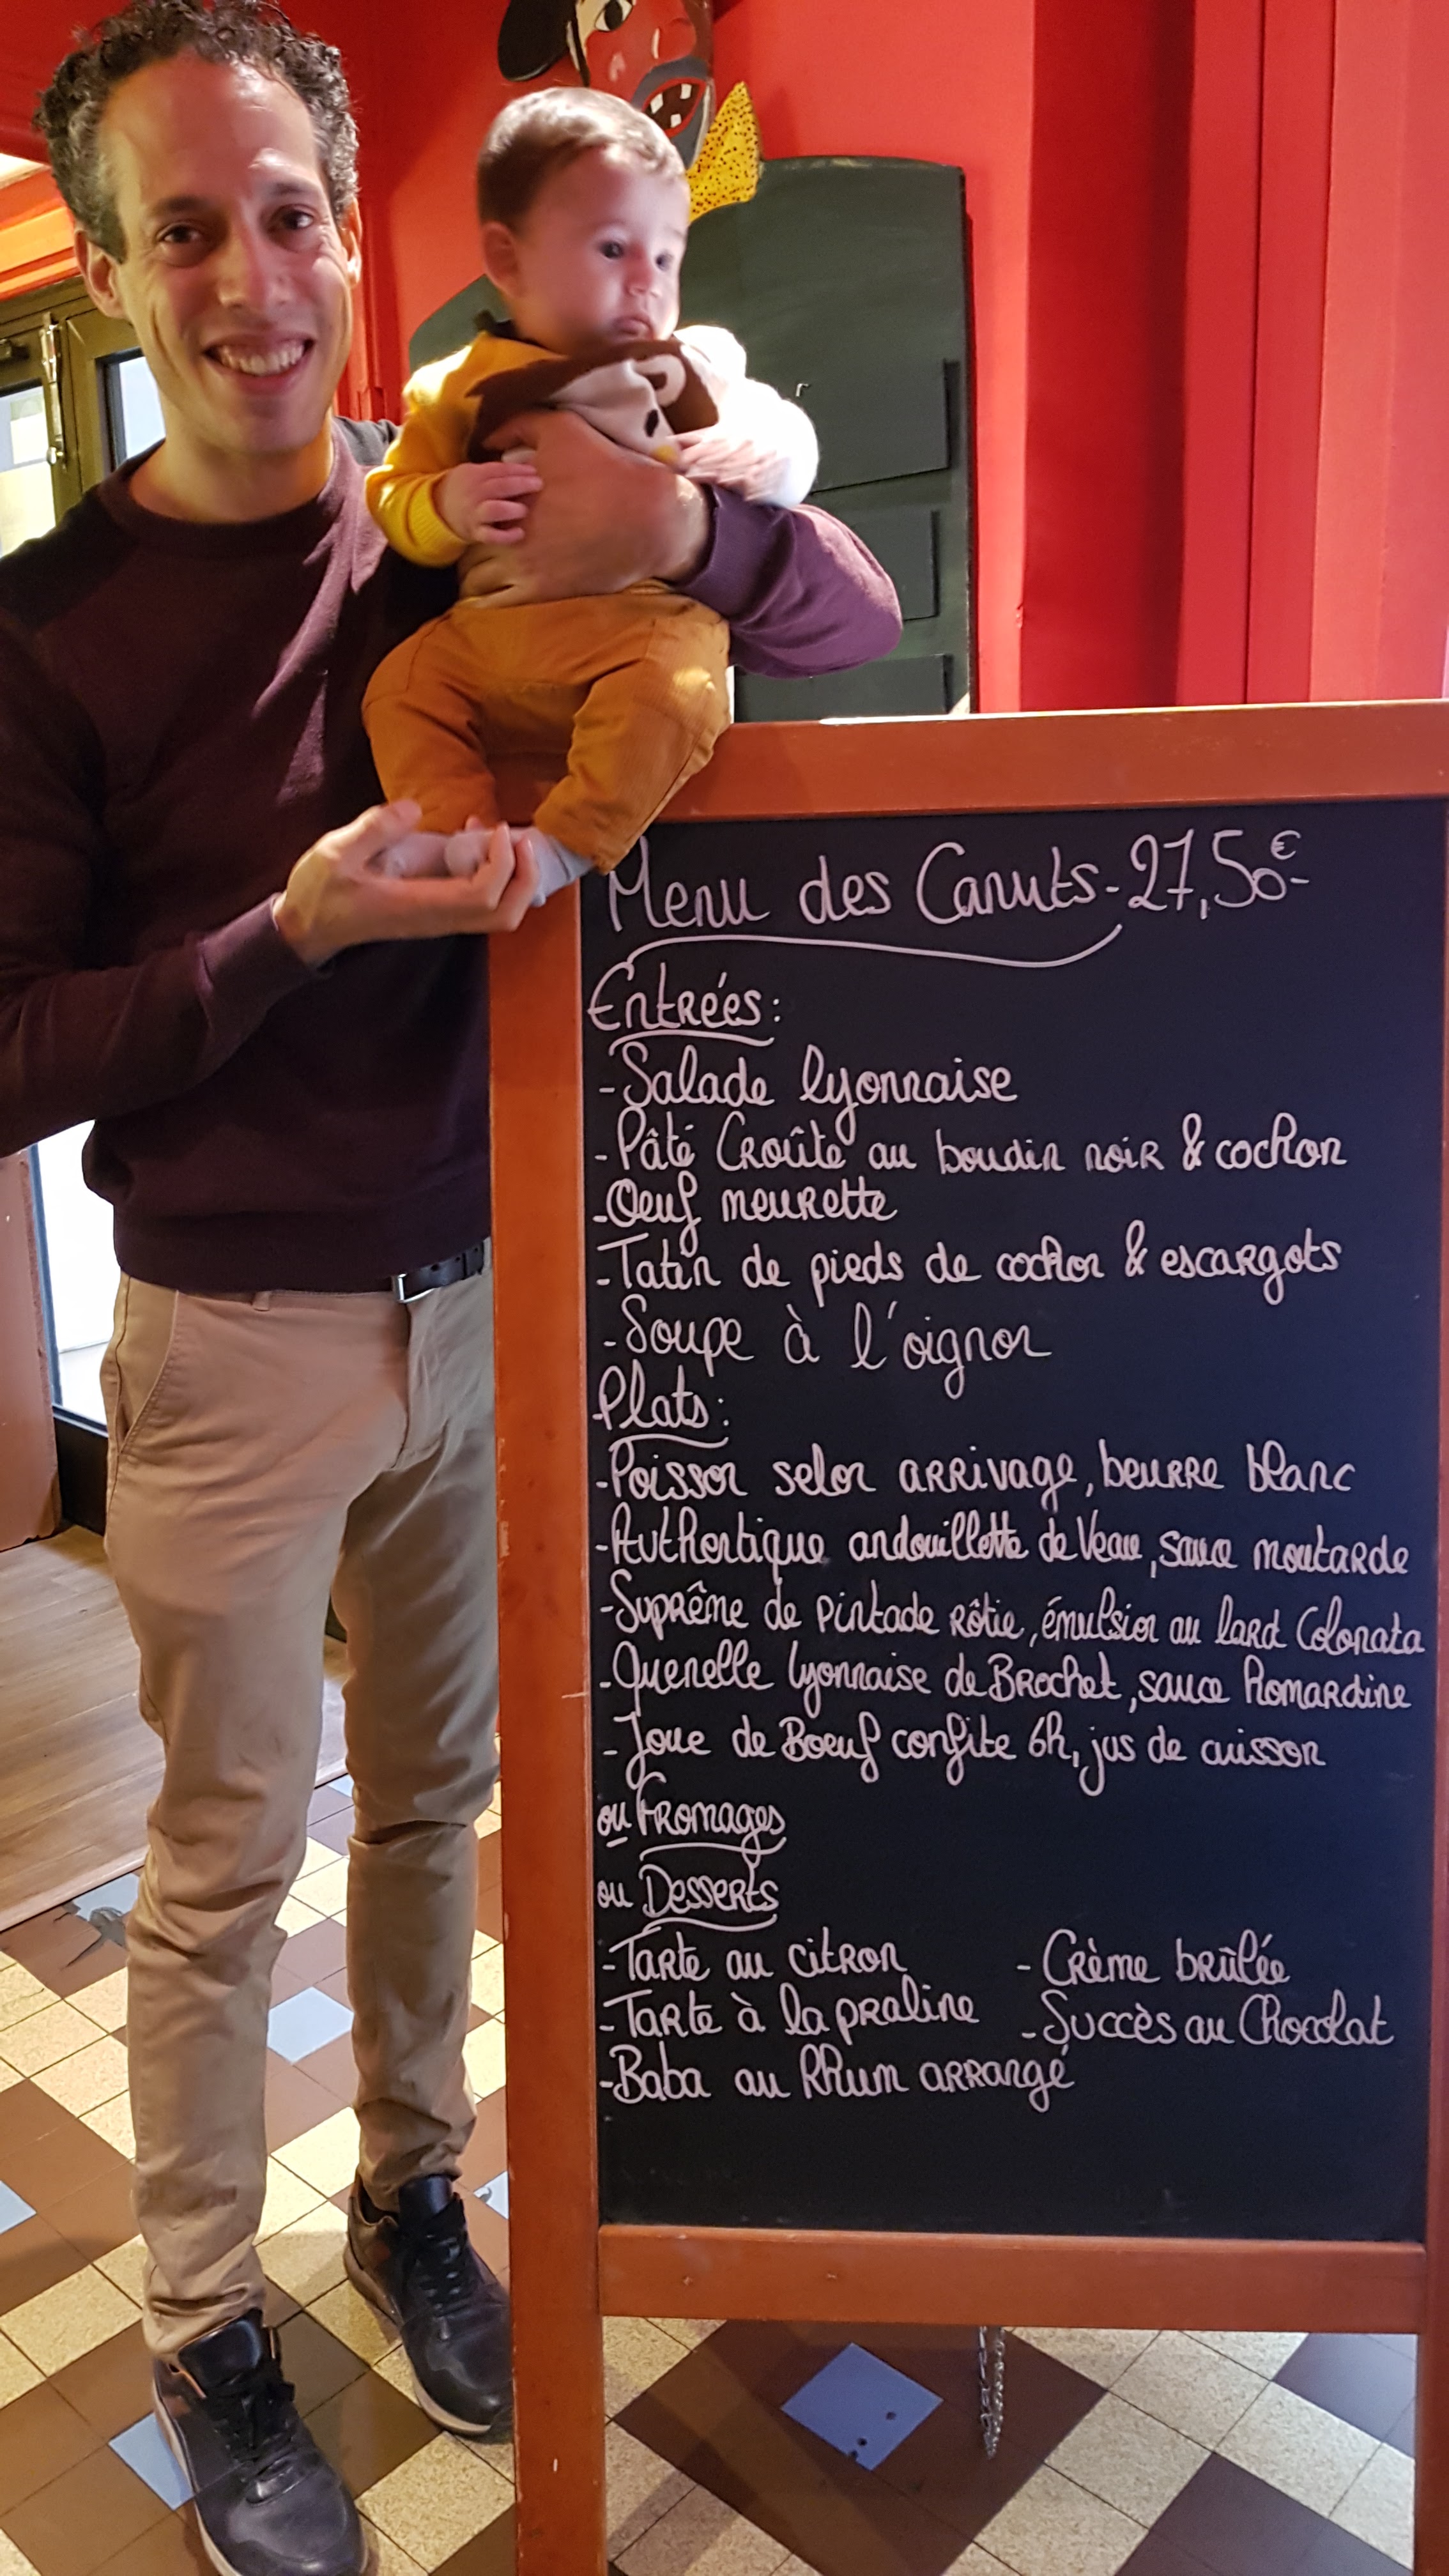 Menu des Canuts - 27,50€-
Entrées:
- Salade lyonnaise
- Pâté Croûte au boudin noir & cochon
- Oeuf meurette
- Tatin de pieds de cochon & escargots
- Soupe à l'oignon
Plats:
- Poisson selon arrivage, beurre blanc
- Authentique andouillette de Veau, sauce moutarde
- Suprême de pintade rôtie, émulsion au lard Colonata
- Quenelle lyonnaise de Brochet, sauce Homardine
- Joue de Boeuf confite 6h, jus de cuisson
ou Fromages
ou Desserts
- Tarte au citron - Crème brûlée
- Tarte à la praline - Succès au Chocolat
- Baba au Rhum arrangé